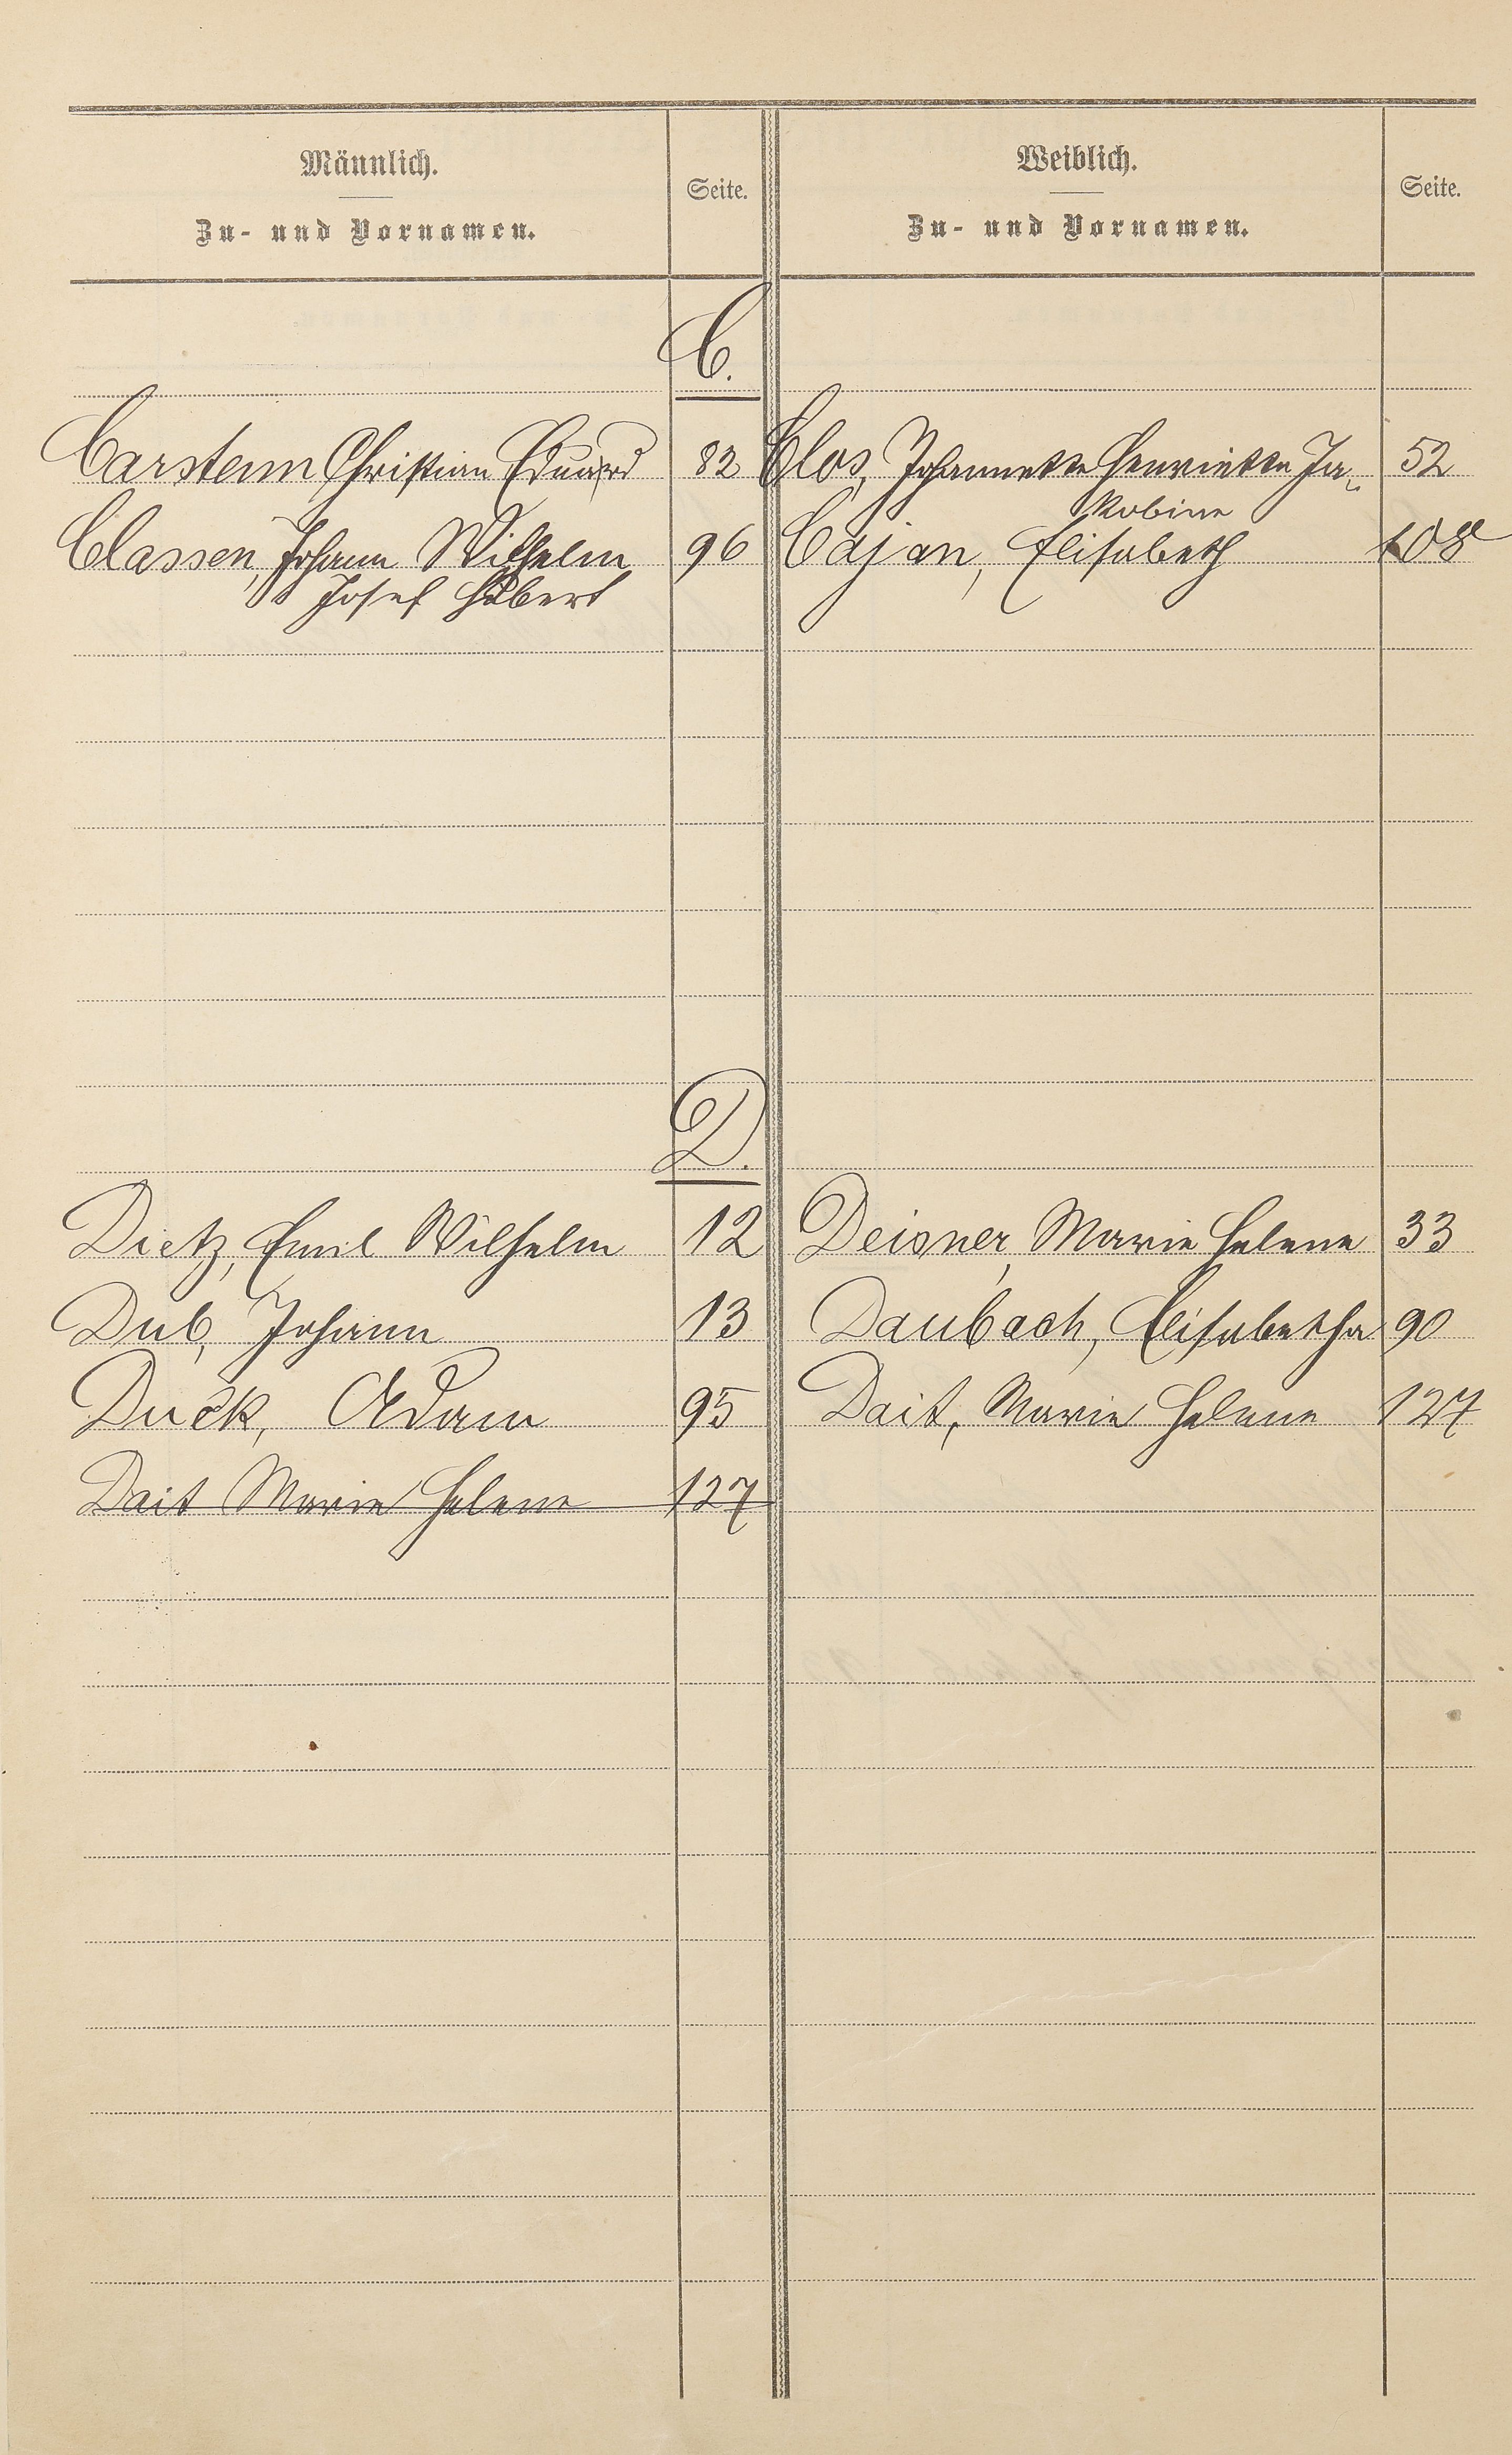 Männlich.
Zu- und Vornamen.
Seite.
Weiblich.
Zu- und Vornamen.
Seite.
C.
Carstenn Christian Eduard 82
Clos, Johannette Henriette Ja-
kobine 52
Classen, Johann Wilhelm 96
Josef Hubert
Cajan, Elisabeth 108
D.
Dietz, Emil Wilhelm 12
Deisner, Marie Helene 33
Dub, Johann 13
Daubach, Elisabetha 90
Duck, Adam 95
Dait, Marie Helene 127
Dait Marie Helene 127